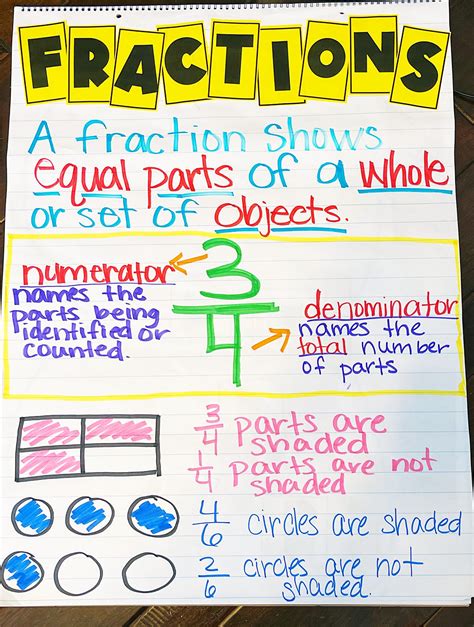 FRACTIONS
A fraction shows
equal parts of a whole
or set of objects.
numerator
names the
parts being
identified or
counted.
3
4
denominator
names the
total number
of parts
3/4 parts are
shaded
1/4 parts are not
shaded
4/6 circles are shaded
2/6 circles are not
shaded.